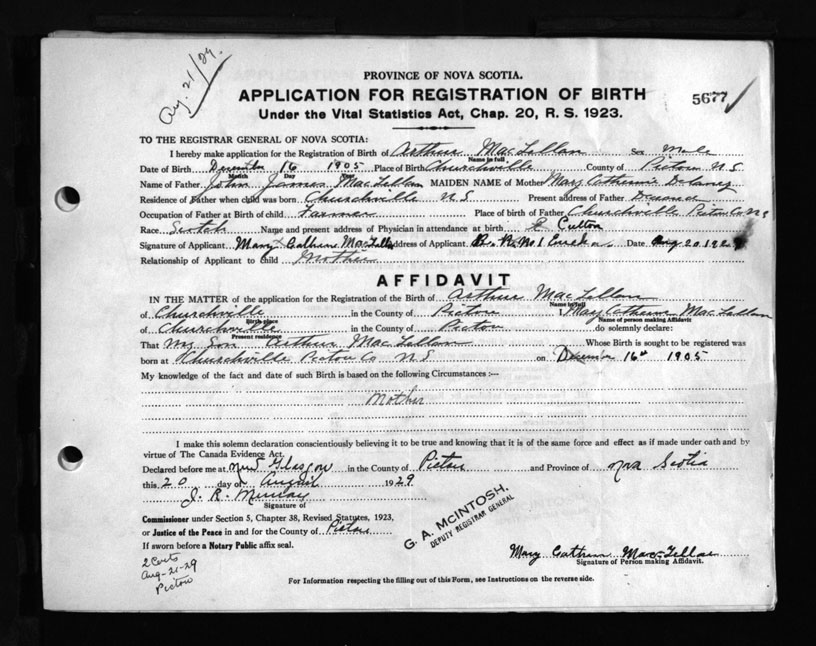 Aug. 21/29.
PROVINCE OF NOVA SCOTIA.
APPLICATION FOR REGISTRATION OF BIRTH
5677
Under the Vital Statistics Act, Chap. 20, R. S. 1923.
TO THE REGISTRAR GENERAL OF NOVA SCOTIA:
I hereby make application for the Registration of Birth of Arthur MacLellan Sex Male
Name in full
Date of Birth December 16 1905 Place of Birth Churchville County of Pictou N S
Month Day
Name of Father John James MacLellan MAIDEN NAME of Mother Mary Catherine Delaney
Residence of Father when child was born Churchville N S Present address of Father Deceased
Occupation of Father at Birth of child Farmer Place of birth of Father Churchville Pictou Co N S
Race Scotch Name and present address of Physician in attendance at birth Cutton
Signature of Applicant Mary Catherine MacLellan Address of Applicant R. R. No 1 Date Aug 20 1929
Relationship of Applicant to Child Mother
AFFIDAVIT
IN THE MATTER of the application for the Registration of the Birth of Arthur MacLellan
Name in full
of Churchville in the County of Pictou I Mary Catherine MacLellan
Birth place
Name of person making Affidavit
of Churchville in the County of Pictou do solemnly declare:
Present residence
That my Son Arthur MacLellan Whose Birth is sought to be registered was
born at Churchville Pictou Co N S on December 16th 1905
My knowledge of the fact and date of such Birth is based on the following Circumstances:—
Mother
I make this solemn declaration conscientiously believing it to be true and knowing that it is of the same force and effect as if made under oath and by
virtue of The Canada Evidence Act.
Declared before me at New Glasgow in the County of Pictou and Province of Nova Scotia
this 20 day of August 1929
J. R. Murray
Signature of
Commissioner under Section 5, Chapter 38, Revised Statutes, 1923,
or Justice of the Peace in and for the County of Pictou
If sworn before a Notary Public affix seal.
G. A. McINTOSH.
DEPUTY REGISTRAR GENERAL
Mary Catherine MacLellan
Signature of Person making Affidavit.
2 Certs
Aug-21-29
Pictou
For Information respecting the filling out of this Form, see Instructions on the reverse side.